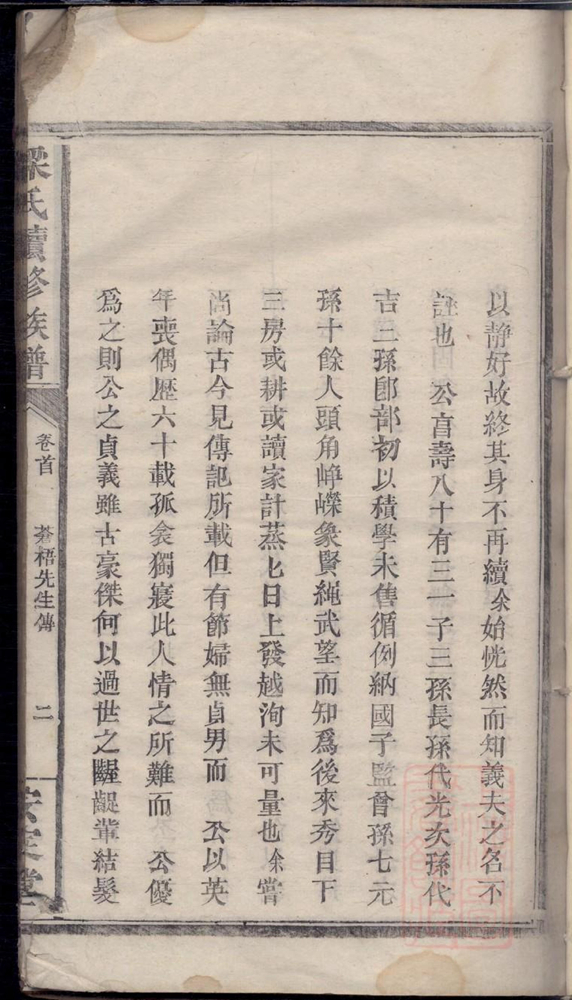 以靜好故終其身不再續余始恍然而知義夫之名不
誣也　公富壽八十有三一子三孫長孫代光次孫代
吉三孫郎部初以積學未售循例納國子監曾孫七元
孫十餘人頭角崢嶸象賢繩武望而知爲後來秀目下
三房或耕或讀家計蒸匕日上發越洵未可量也余嘗
尚論古今見傳記所載但有節婦無貞男而　公以英
年喪偶歷六十載孤衾獨寢此人情之所難而　公優
爲之則公之貞義雖古豪傑何以過世之齷齪輩結髮
氏續修族譜
卷首
蒼梧先生傳
二
堂